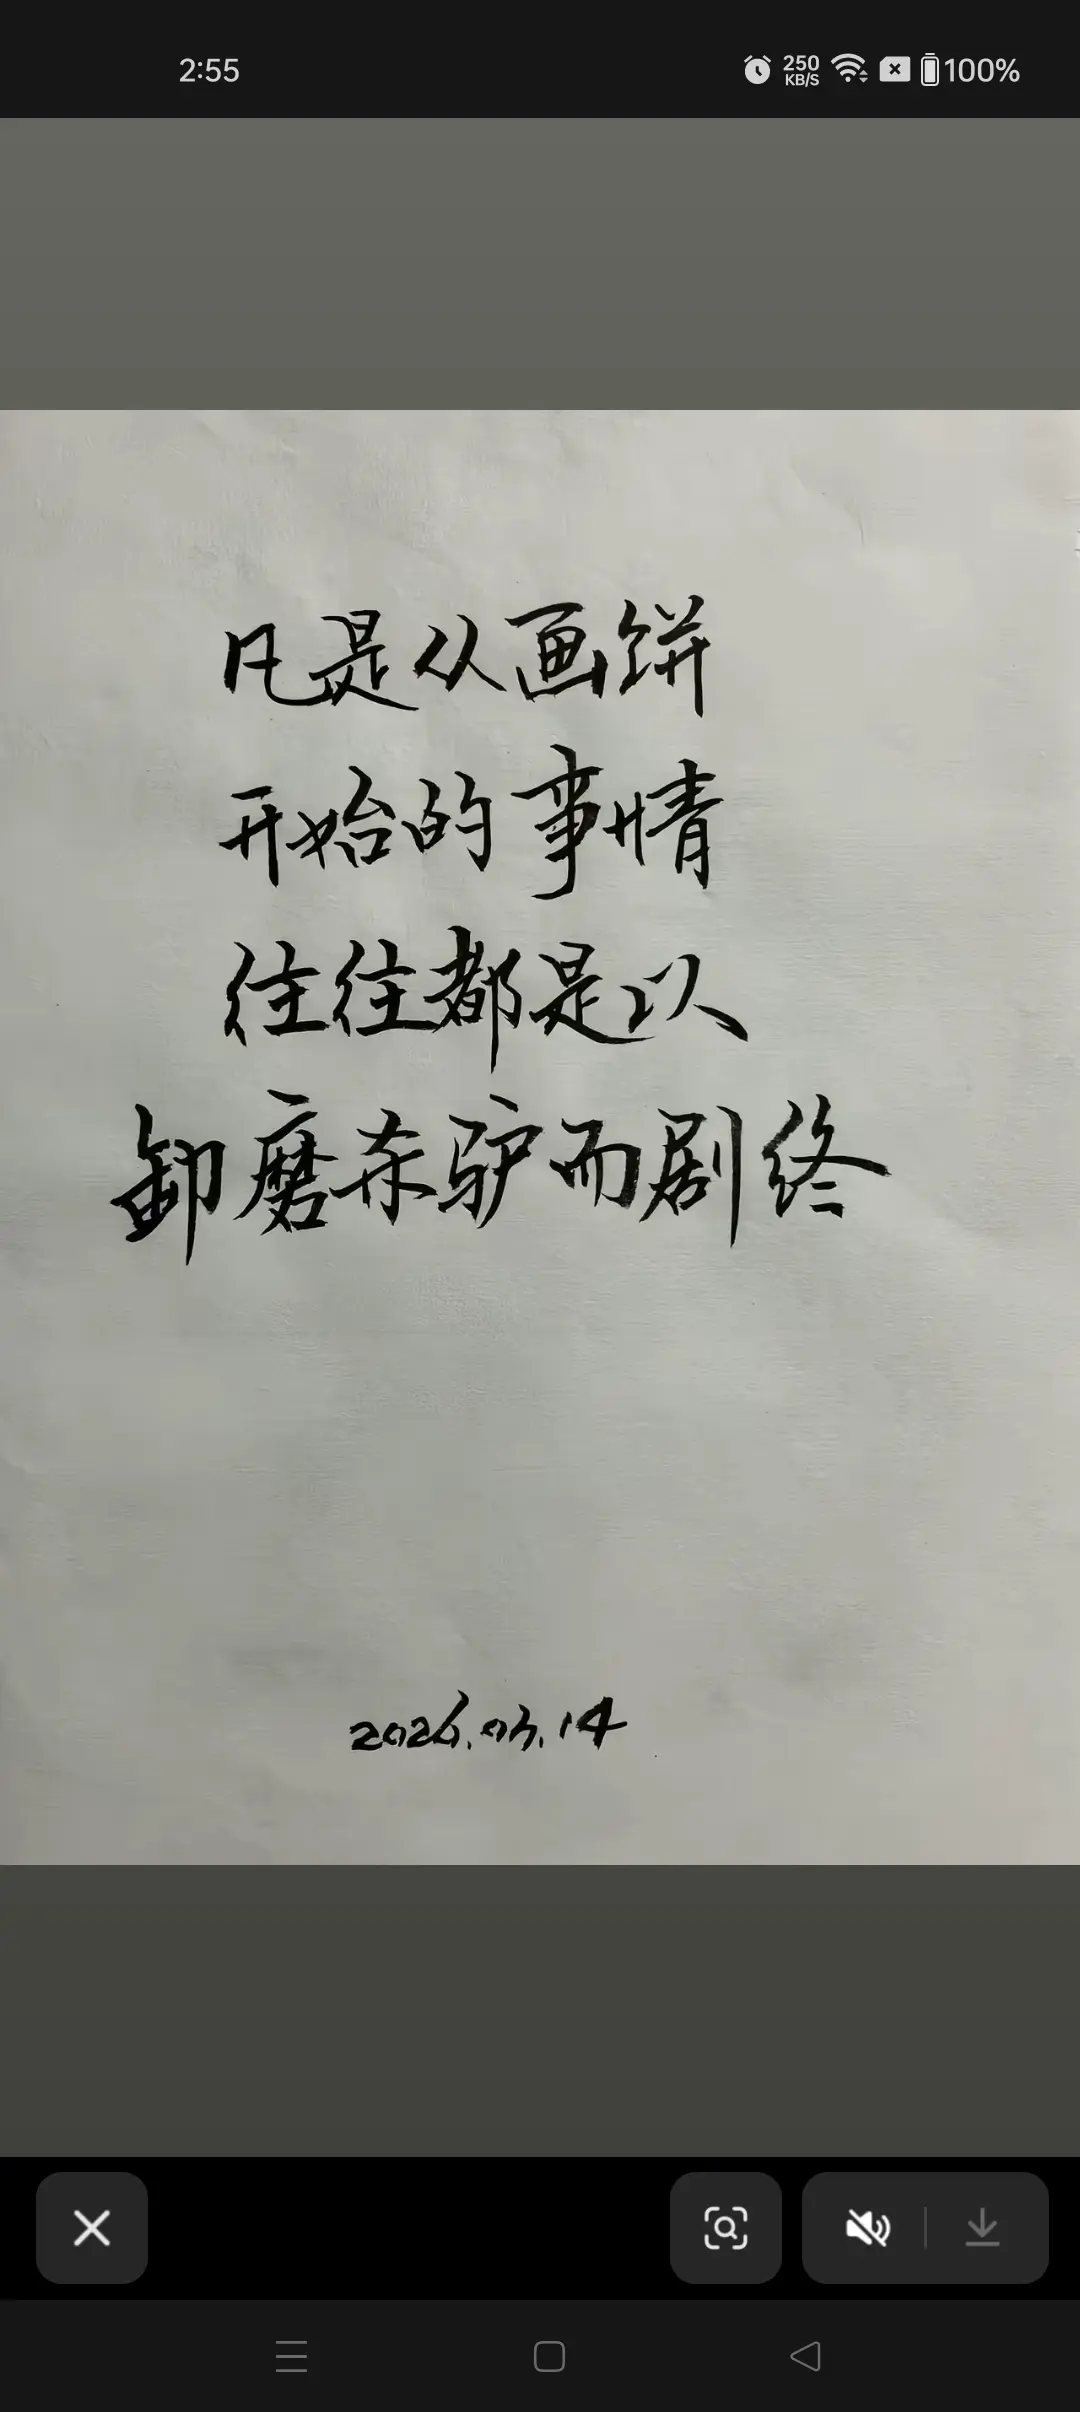 2:55 250 KB/S 100%
凡是从画饼
开始的事情
往往都是以
卸磨杀驴而剧终
2026.03.14